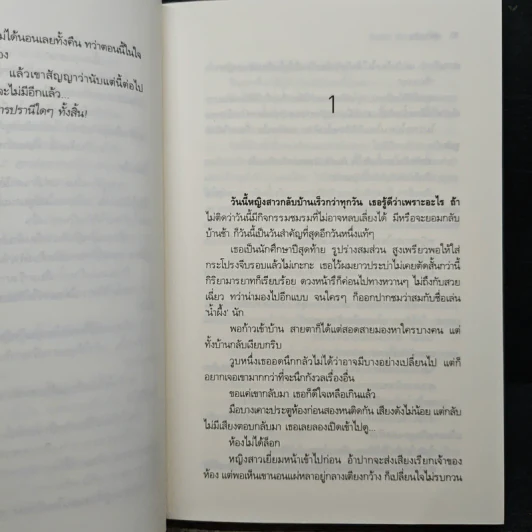 ไม่ได้นอนเลยทั้งคืน ทว่าตอนนี้ในใจ
แล้วเขาสัญญาว่านับแต่นี้ต่อไป
จะไม่มีอีกแล้ว...
ปรานีใดๆ ทั้งสิ้น!
1
วันนี้หญิงสาวกลับบ้านเร็วกว่าทุกวัน เธอรู้ดีว่าเพราะอะไร ถ้า
ไม่ติดว่าวันนี้มีกิจกรรมชมรมที่ไม่อาจหลบเลี่ยงได้ มีหรือจะยอมกลับ
บ้านช้า ก็วันนี้เป็นวันสำคัญที่สุดอีกวันหนึ่งแท้ๆ
เธอเป็นนักศึกษาปีสุดท้าย รูปร่างสมส่วน สูงเพรียวพอให้ใส่
กระโปรงจีบรอบแล้วไม่เกะกะ เธอไว้ผมยาวประบ่าไม่เคยตัดสั้นกว่านี้
กิริยามารยาทก็เรียบร้อย ดวงหน้ารึก็ค่อนไปทางหวานๆ ไม่ถึงกับสวย
เฉี่ยว ทว่าน่ามองไปอีกแบบ จนใครๆ ก็ออกปากชมว่าสมกับชื่อเล่น
'น้ำผึ้ง' นัก
พอก้าวเข้าบ้าน สายตาก็ได้แต่สอดส่ายมองหาใครบางคน แต่
ทั้งบ้านกลับเงียบกริบ
วูบหนึ่งเธออดนึกกลัวไม่ได้ว่าอาจมีบางอย่างเปลี่ยนไป แต่ก็
อยากเจอเขามากกว่าที่จะนึกกังวลเรื่องอื่น
ขอแค่เขากลับมา เธอก็ดีใจเหลือเกินแล้ว
มือบางเคาะประตูห้องก่อนสองหนติดกัน เสียงดังไม่น้อย แต่กลับ
ไม่มีเสียงตอบกลับมา เธอเลยลองเปิดเข้าไปดู...
ห้องไม่ได้ล็อก
หญิงสาวเยี่ยมหน้าเข้าไปก่อน อ้าปากจะส่งเสียงเรียกเจ้าของ
ห้อง แต่พอเห็นเขานอนแผ่หลาอยู่กลางเตียงกว้าง ก็เปลี่ยนใจไม่รบกวน